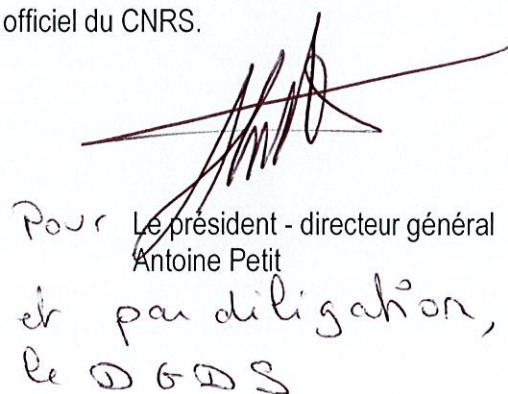 officiel du CNRS.
Pour Le président - directeur général
Antoine Petit
et par diligation,
le DGDS